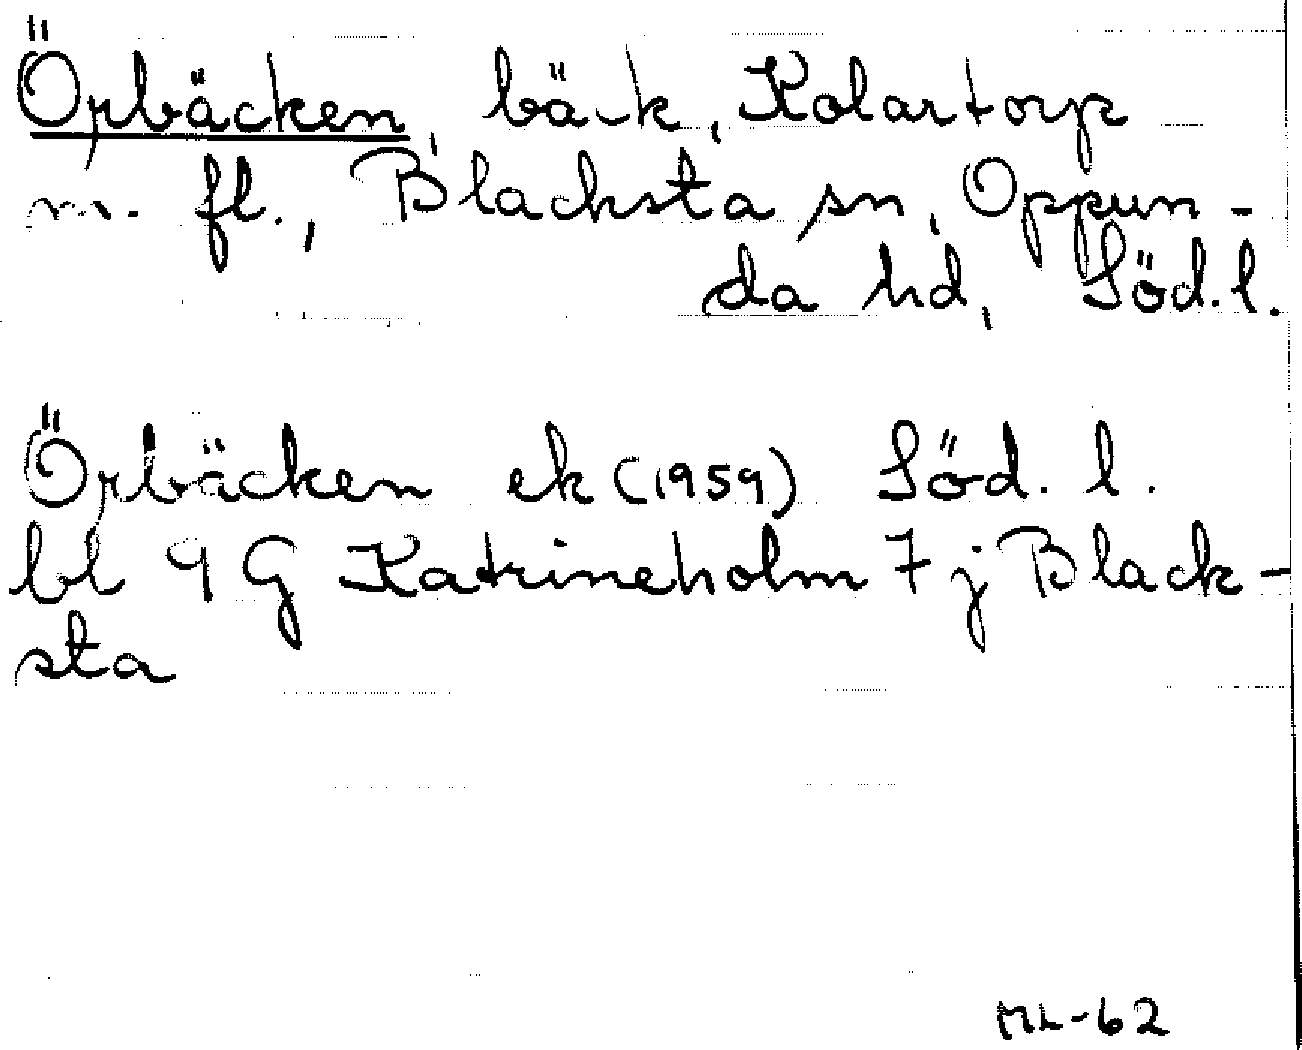 Örbäcken, bäck, Kolartorp
m. fl., Blacksta sn, Oppun-
da hd, Söd. l.
Örbäcken ek (1959) Söd. l.
bl 9 G Katrineholm 7 j Black-
sta
ML-62